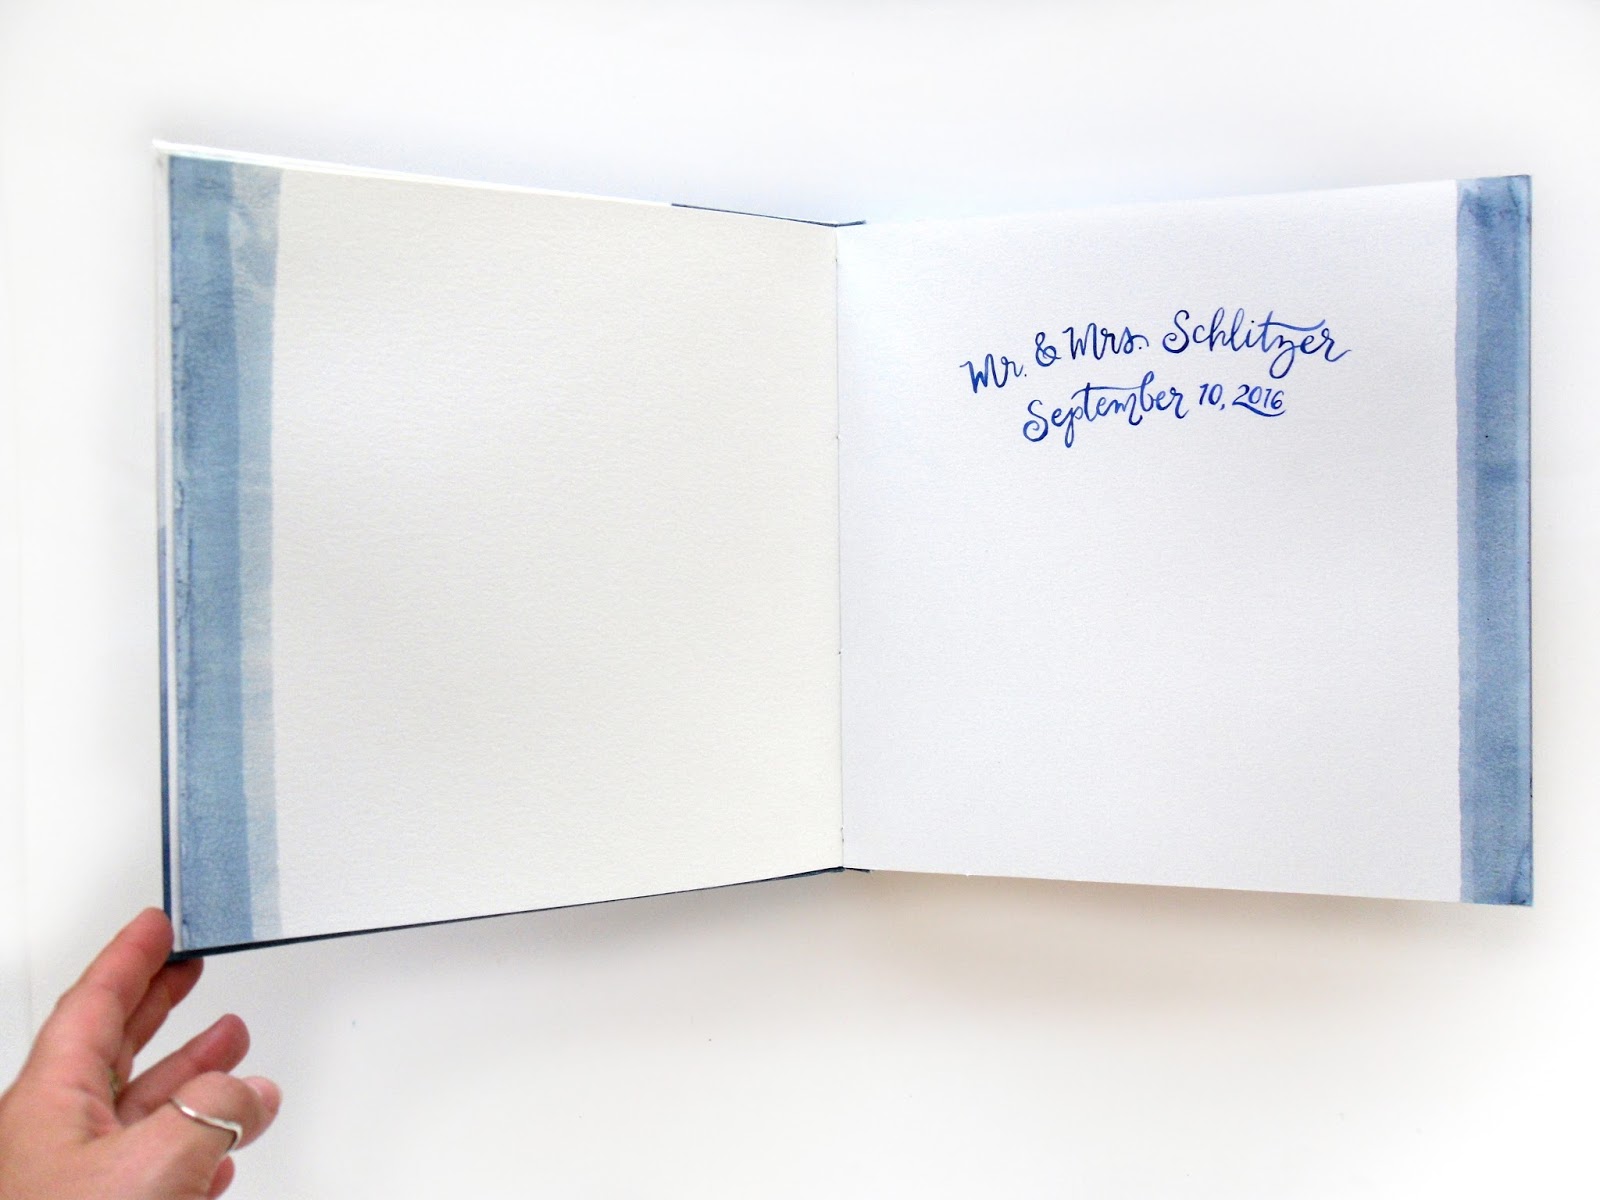 Mr. & Mrs. Schlitzer
September 10, 2016